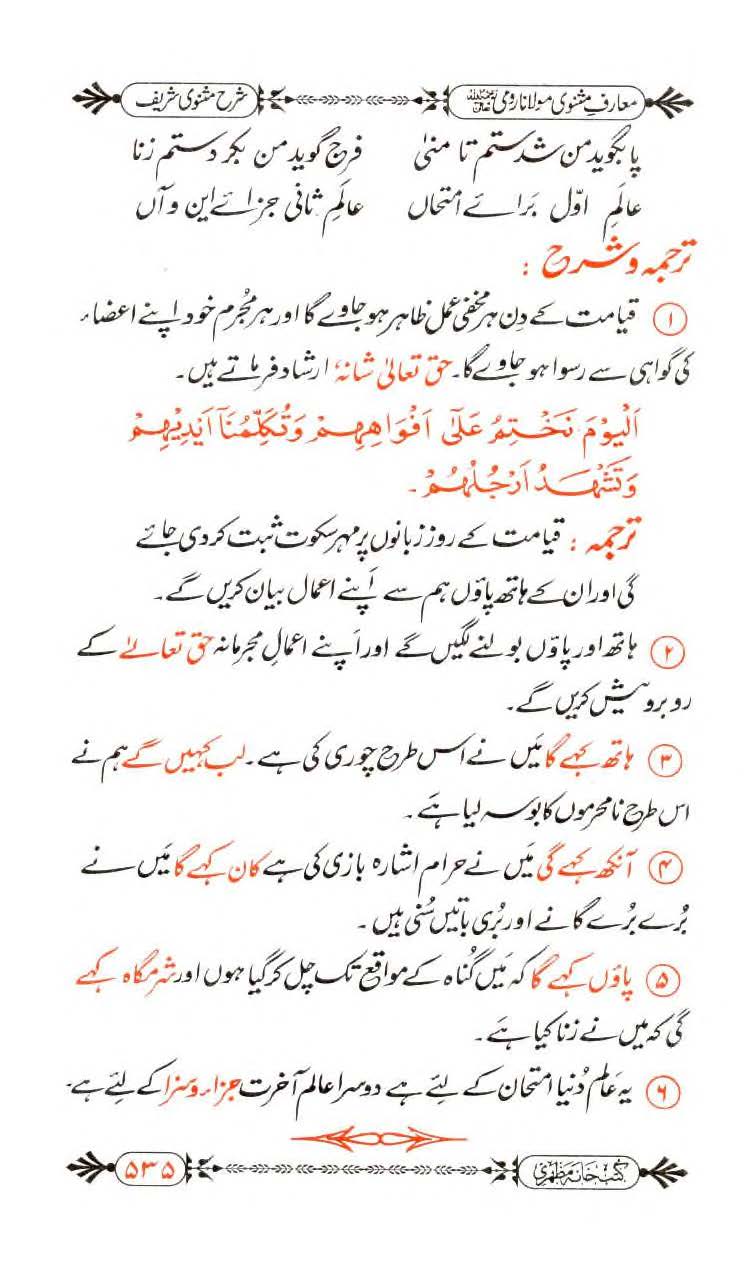 معارفِ مثنوی مولانا رومی رحمۃ اللہ علیہ
شرح مثنوی شریف
پا بگوید من شدستم تا منیٰ فرج گوید من بکر دستم زنا
عالمِ اوّل بَرائے امتحاں عالَمِ ثانی جزائے این و آں
ترجمہ و شرح :
۱ قیامت کے دِن ہر مخفی عمل ظاہر ہو جاوے گا اور ہر مُجرم خود اپنے اعضاء
کی گواہی سے رسوا ہو جاوے گا۔ حق تعالیٰ شانہٗ ارشاد فرماتے ہیں۔
اَلْيَوْمَ نَخْتِمُ عَلٰٓى اَفْوَاهِهِمْ وَتُكَلِّمُنَآ اَيْدِيْهِمْ
وَتَشْهَدُ اَرْجُلُهُمْ۔
ترجمہ : قیامت کے روز زبانوں پر مہر سکوت ثبت کر دی جائے
گی اور ان کے ہاتھ پاؤں ہم سے اَپنے اعمال بیان کریں گے۔
۲ ہاتھ اور پاؤں بولنے لگیں گے اور اَپنے اعمالِ مجرمانہ حق تعالےٰ کے
روبرو پیش کریں گے۔
۳ ہاتھ کہے گا مَیں نے اس طرح چوری کی ہے۔ لب کہیں گے ہم نے
اس طرح نامحرموں کا بوسہ لیا ہَے۔
۴ آنکھ کہے گی مَیں نے حرام اشارہ بازی کی ہے کان کہے گا مَیں نے
بُرے بُرے گانے اور بُری باتیں سُنی ہیں۔
۵ پاؤں کہے گا کہ مَیں گُناہ کے مواقع تک چل کر گیا ہوں اور شرمگاہ کہے
گی کہ میں نے زنا کیا ہَے۔
۶ یہ عَالم دُنیا امتحان کے لئے ہے دوسرا عالم آخرت جزاء و سزا کے لئے ہے۔
کتب خانہ مظہری
۵۳۵